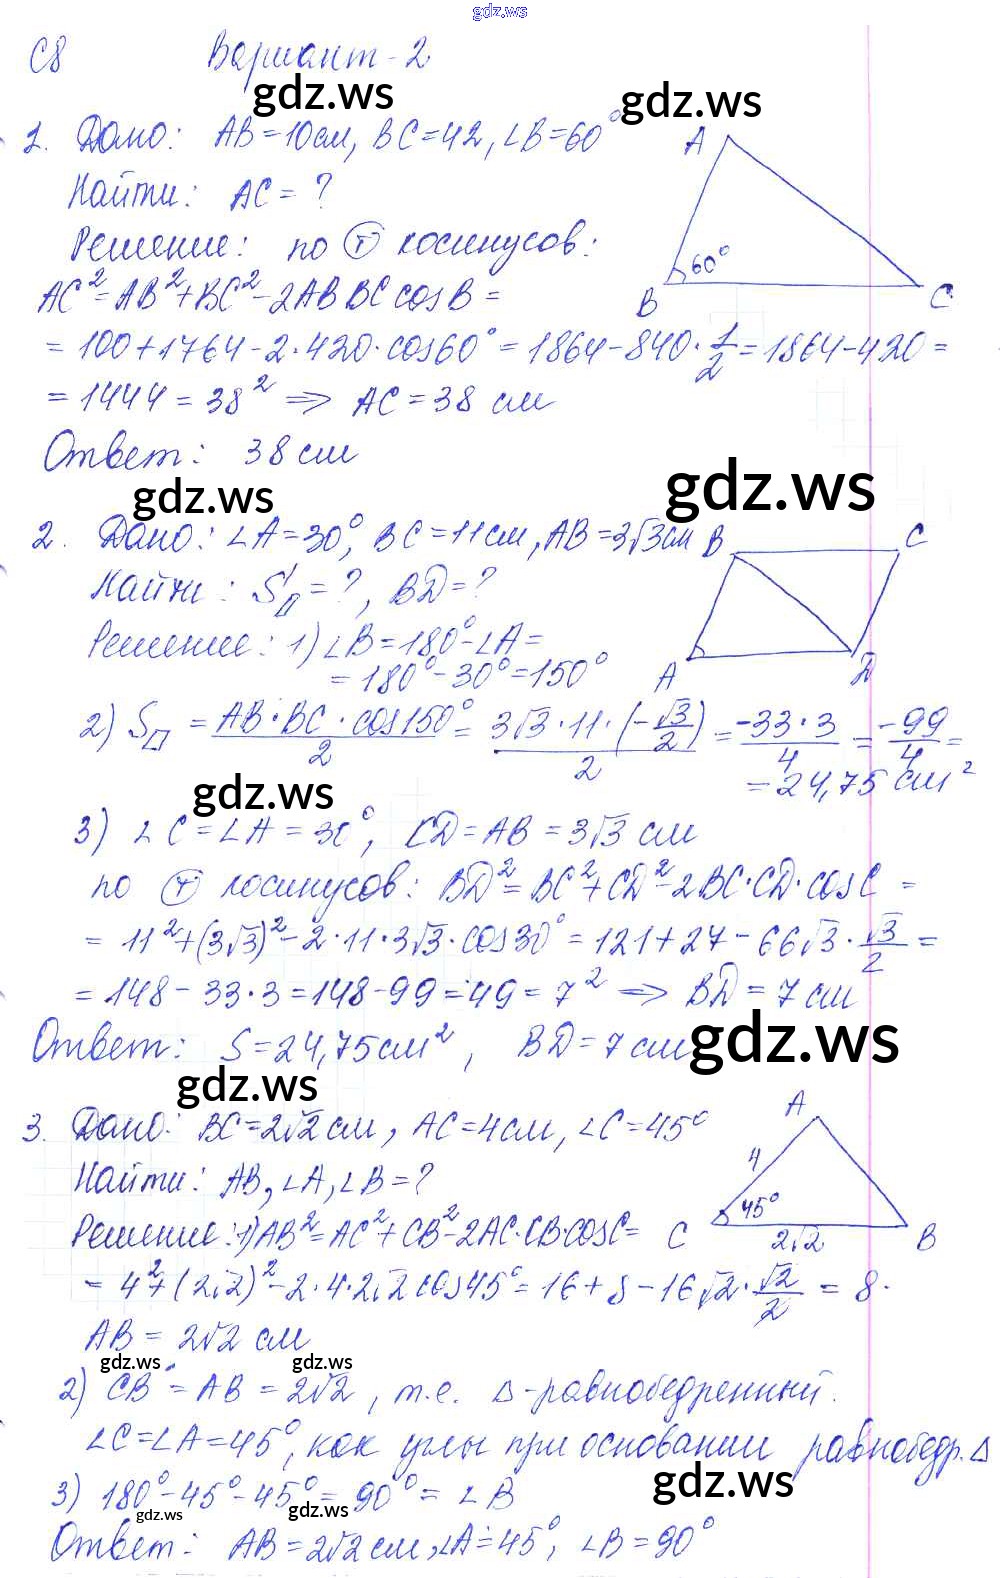 gdz.ws
С8 Вариант-2
gdz.ws gdz.ws
1. Дано: AB=10см, BC=42, ∠B=60°
A
Найти: AC=?
Решение: по Ⓣ косинусов:
60°
B C
AC²=AB²+BC²-2AB BC cosB=
=100+1764-2·420·cos60°=1864-840·1/2=1864-420=
=1444=38² ⇒ AC=38 см
Ответ: 38см
gdz.ws gdz.ws
2. Дано: ∠A=30°, BC=11см, AB=3√3см
B C
Найти: S▱=?, BD=?
Решение: 1) ∠B=180°-∠A=
=180°-30°=150°
A D
2) S▱ = AB·BC·cos150°/2 = 3√3·11·(-√3/2)/2 = -33·3/4 = -99/4 =
=24,75 см²
gdz.ws
3) ∠C=∠A=30°, CD=AB=3√3 см
по Ⓣ косинусов: BD²=BC²+CD²-2BC·CD·cosC=
=11²+(3√3)²-2·11·3√3·cos30°=121+27-66√3·√3/2=
=148-33·3=148-99=49=7² ⇒ BD=7см
Ответ: S=24,75см², BD=7см
gdz.ws gdz.ws
3. Дано: BC=2√2см, AC=4см, ∠C=45°
A
Найти: AB, ∠A, ∠B=?
4
45°
C 2√2 B
Решение: 1) AB²=AC²+CB²-2AC·CB·cosC=
=4²+(2√2)²-2·4·2√2cos45°=16+8-16√2·√2/2=8.
AB=2√2 см
gdz.ws gdz.ws
2) CB=AB=2√2, т.е. Δ-равнобедренный.
∠C=∠A=45°, как углы при основании равнобедр.Δ
gdz.ws gdz.ws
3) 180°-45°-45°=90°=∠B
gdz.ws gdz.ws
Ответ: AB=2√2см, ∠A=45°, ∠B=90°